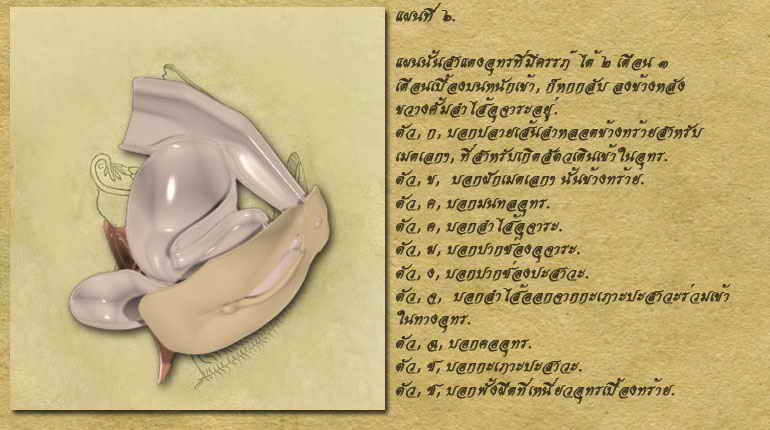 แผนที่ ๒.
แผนนั้นสำแดงอุทรที่มีครรภ์ ได้ ๒ เดือน ๑
เดือนเบื้องบนหนักเข้า, ก็หกกลับ ลงข้างหลัง
ขวางคั้นลำไส้อุจาระอยู่.
ตัว, ก, บอกปลายเส้นลำหลอดข้างทร้ายสำหรับ
เมดเลกๆ, ที่สำหรับเกิดสัตวเดินเข้าในอุทร.
ตัว, ข, บอกฝักเมดเลกๆ นั้นข้างทร้าย.
ตัว, ค, บอกมนทลอุทร.
ตัว, ฅ, บอกลำไส้อุจาระ.
ตัว, ฆ, บอกปากช่องอุจาระ.
ตัว, ง, บอกปากช่องปะสาวะ.
ตัว, จ, บอกลำไส้ออกจากกะเภาะปะสาวะร่วมเข้า
ในทางอุทร.
ตัว, ฉ, บอกคออุทร.
ตัว, ช, บอกกะเภาะปะสาวะ.
ตัว, ซ, บอกพังผืดที่เหนี่ยวอุทรเบื้องทร้าย.